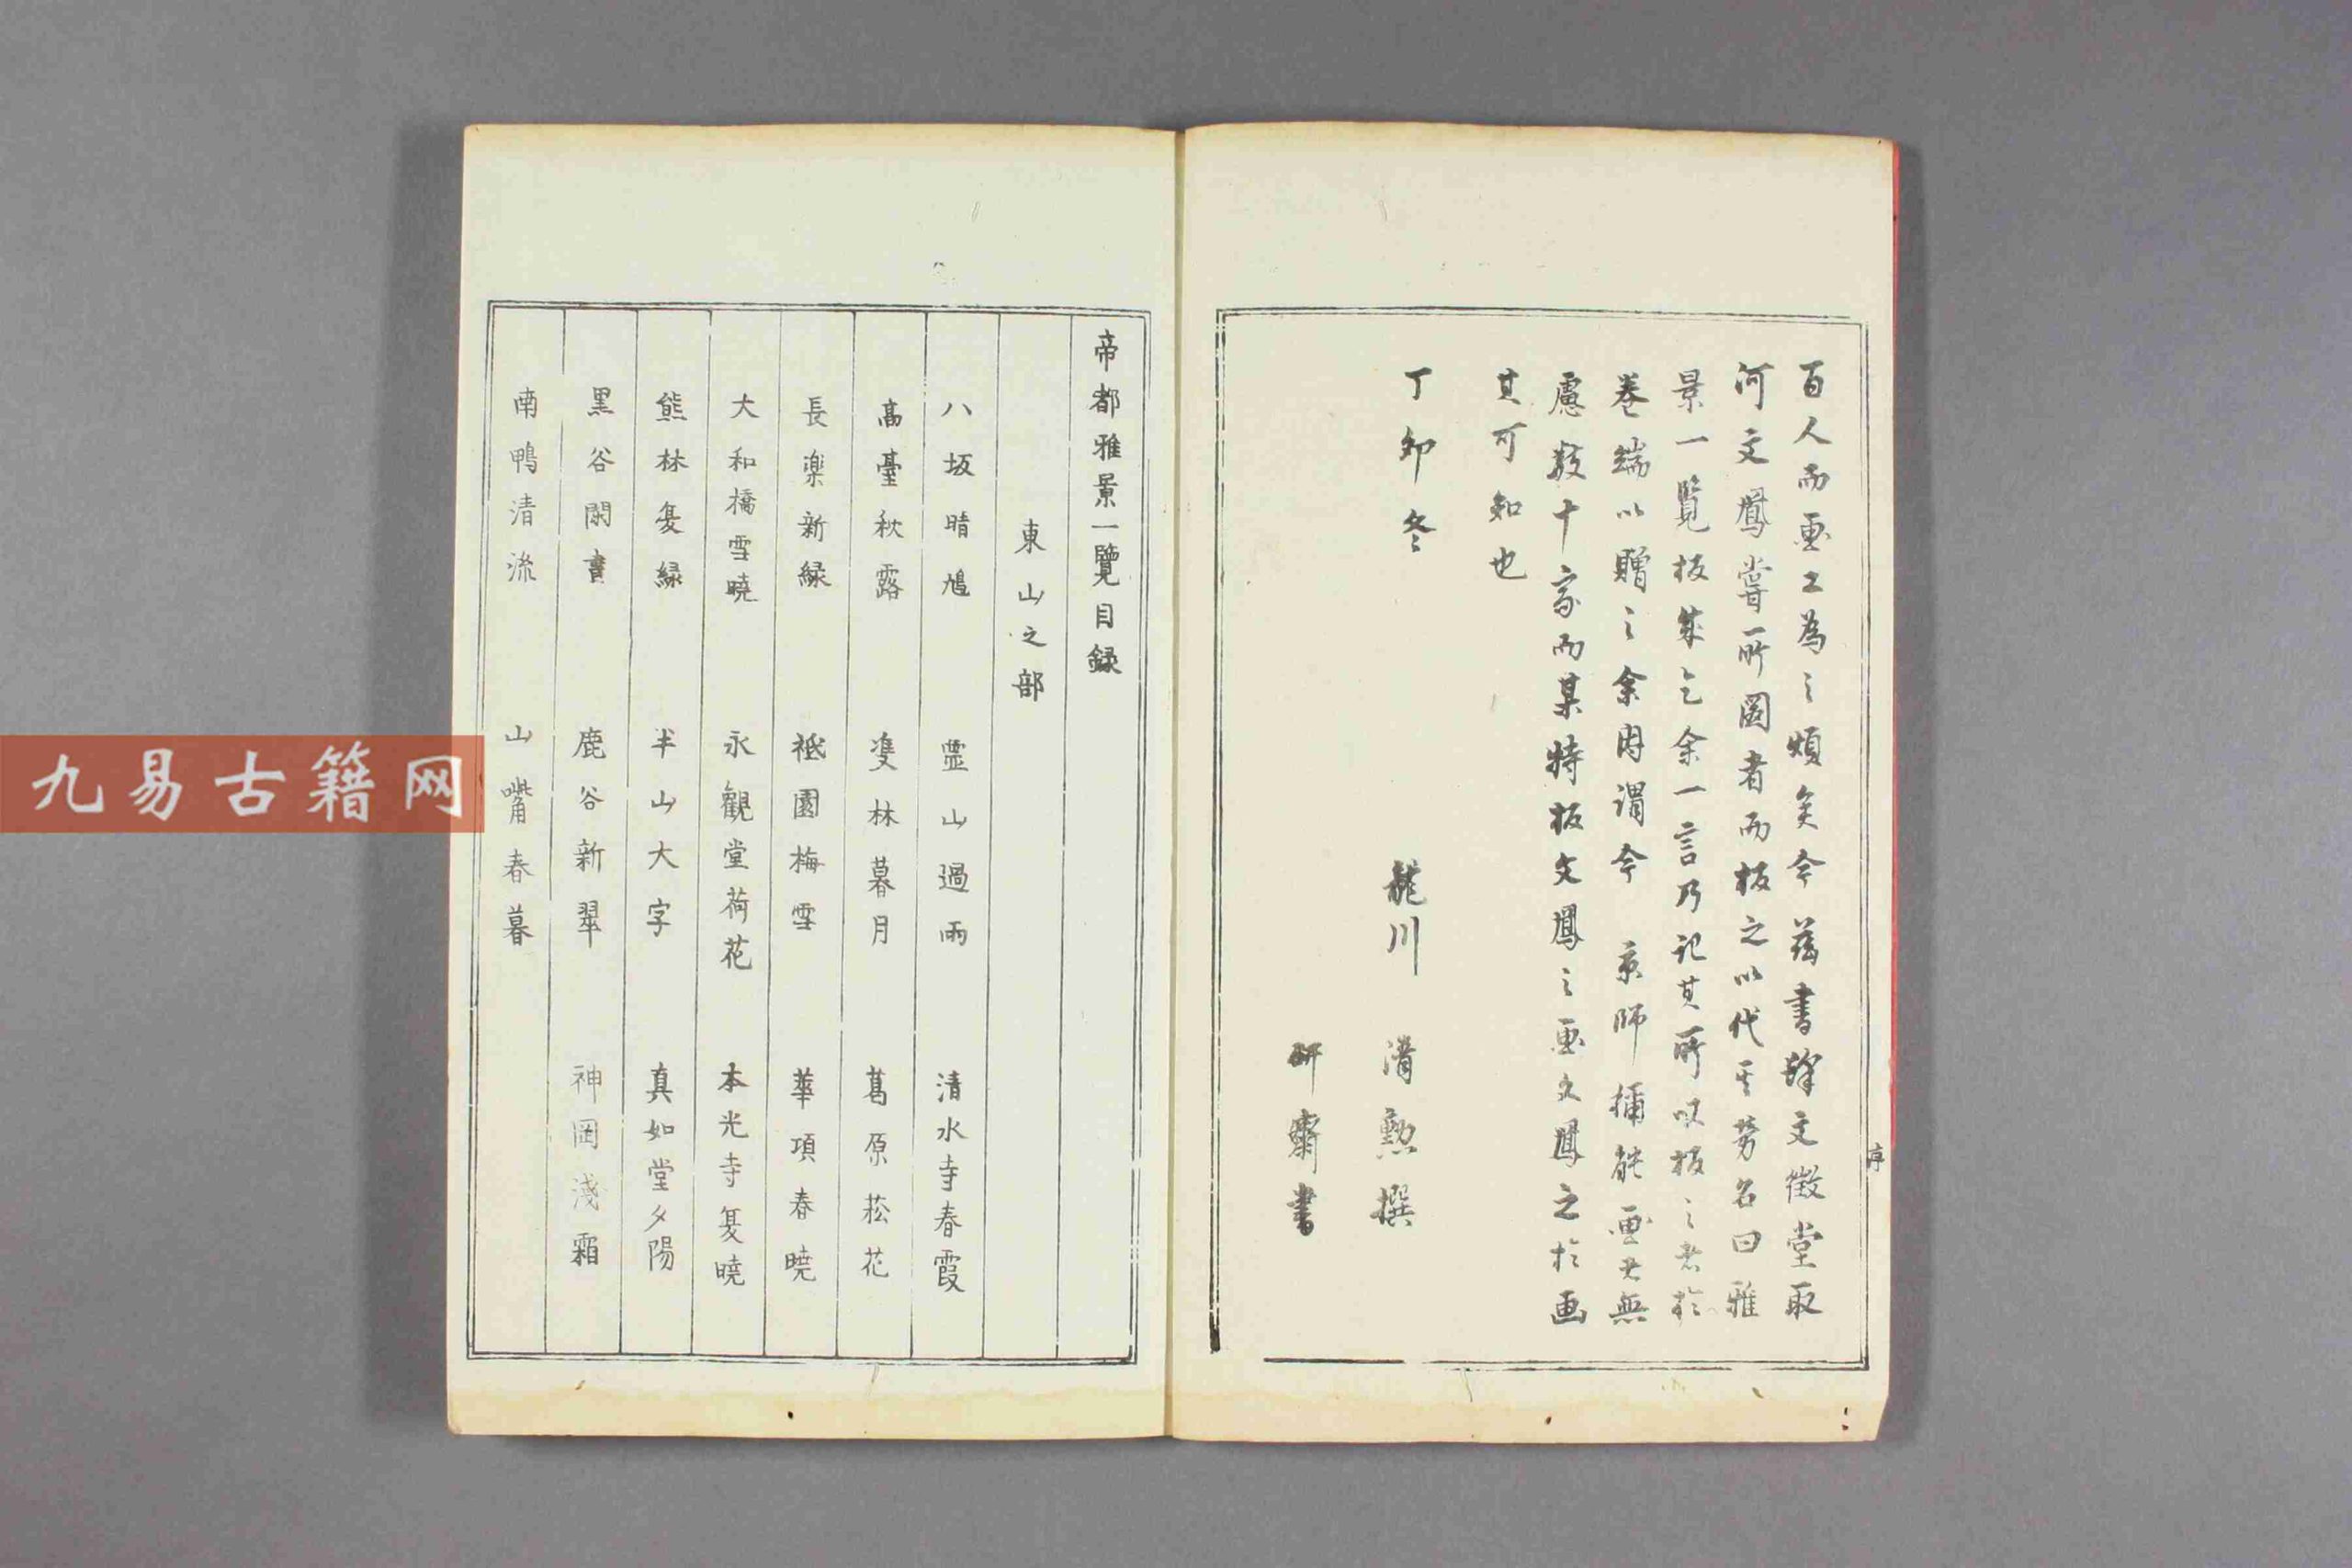 百人而画工為之煩矣今茲書肆文徴堂取
河文鳳嘗所図者而板之以代其労名曰雅
景一覧板成乞余一言乃記其所以板之者於
巻端以贈之余因謂今 京師善能画者無
慮数十家而某特板文鳳之画文鳳之於画
其可知也
丁卯冬
龍川 清勲撰
研齋書
序
帝都雅景一覽目録
東山之部
八坂晴鳩 霊山過雨 清水寺春霞
高臺秋露 雙林暮月 葛原菘花
長楽新緑 祗園梅雪 華頂春曉
大和橋雪曉 永觀堂荷花 本光寺夏曉
熊林夏緑 半山大字 真如堂夕陽
黒谷閑晝 鹿谷新翠 神岡淺霜
南鴨清流 山嘴春暮
九易古籍网